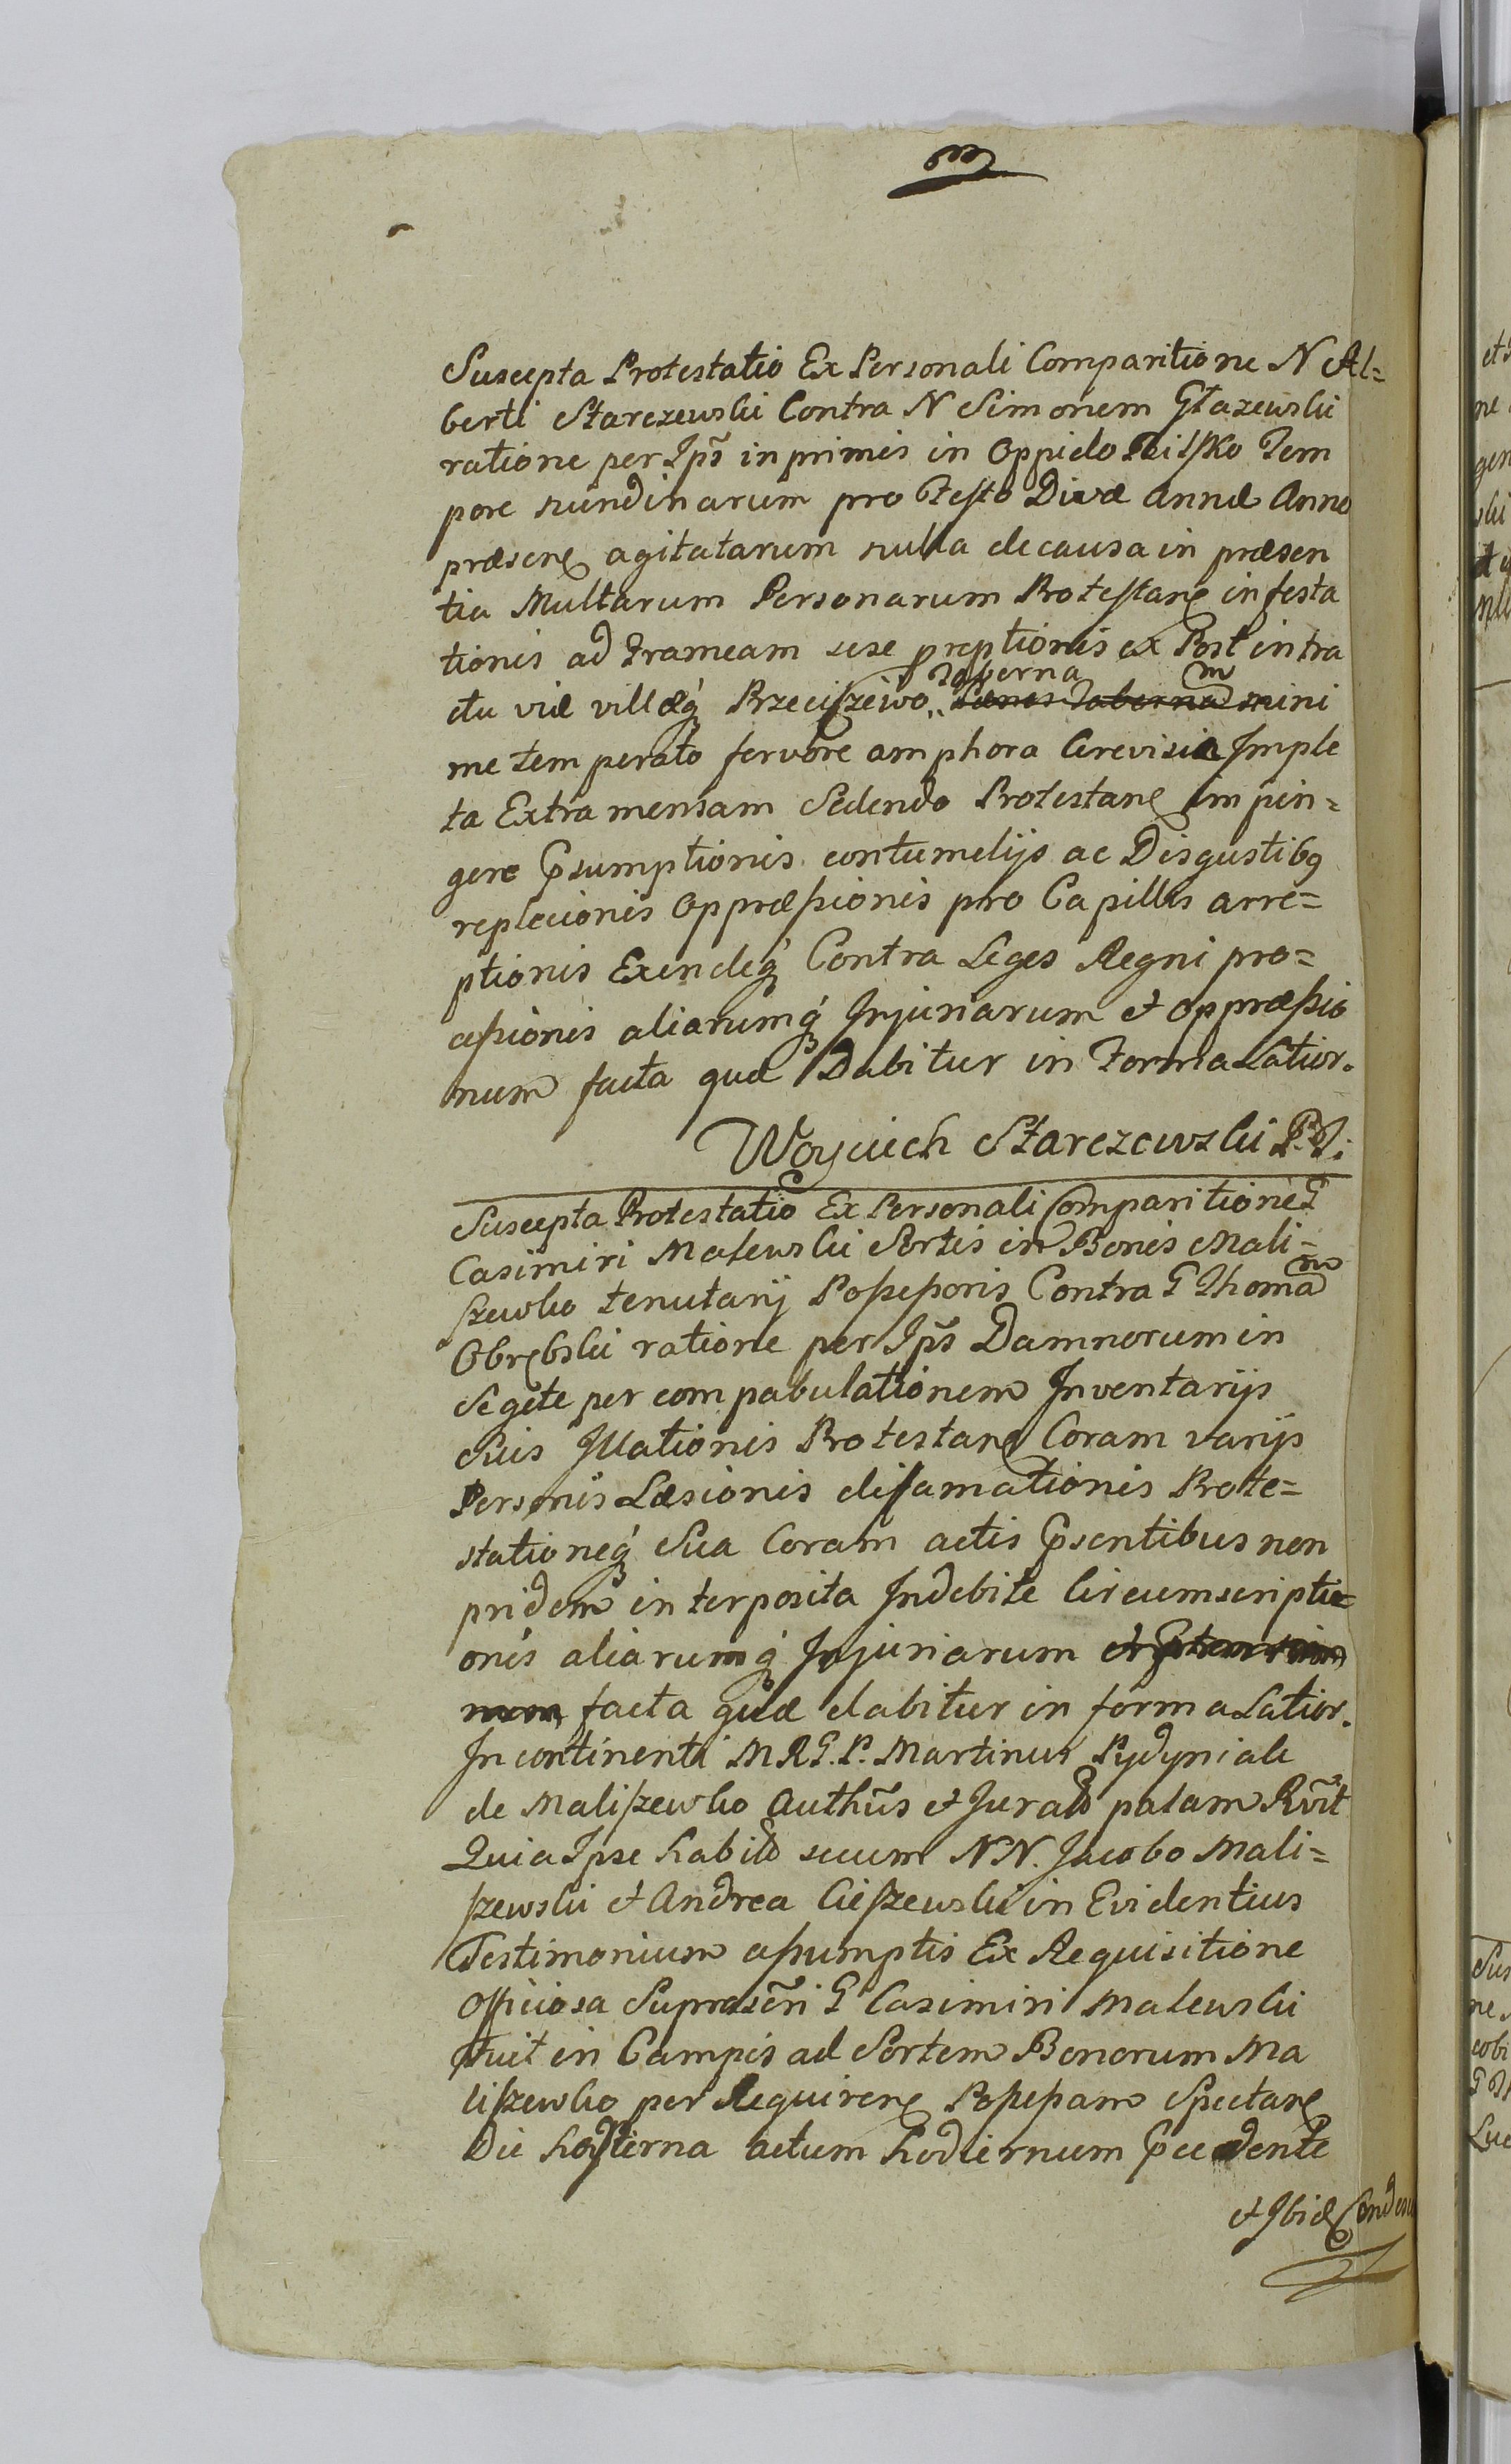 Suscepta Protestatio Ex Personali Comparitione N Al=
berti Starczewski Contra N Simonem Głazewski
ratione per Ips̃ in primis in Oppido Tem
pore nundinarum pro Festo Divæ Annæ Anno
præsenꝭ agitatarum nulla de causa in præsen
tia Multarum Personarum Protestanꝭ infesta
tionis ad Frameam sese preptionis ex Post intra
ctu viæ villæq́ Brzeciszewo Taberna mini
me temperato fervore amphora Cerevisia Imple
ta Extra mensam Sedendo Protestanꝭ impin=
gere Psumptionis contumelijs ac Disgustibꝰ
replecionis Oppræssionis pro Capillis arre=
ptionis Exindeq́ Contra Leges Regni pro=
cessionis aliarumq́ Injuriarum et oppræssio
num facta quæ Dabitur in Forma Latior.
Woyciech Starczewski
Suscepta Protestatio Ex Personali Comparitione G
Casimiri Malewski Sortis in Bonis Mali=
szewko tenutarij Possessoris Contra G Thomam
Obrębski ratione per Ips̃ Damnorum in
Segete per compabulationem Inventarijs
Suis Illationis Protestanꝭ Coram varijs
Personis Læsionis difamationis Prote=
stationeq́ Sua Coram actis Psentibus non
pridem interposita Indebite Circumscripti=
onis aliarumq́ Injuriarum
facta quæ dabitur in forma Latior.
In continenti M R G. P. Martinus Pydyniak
de Maliszewko Authũs et Jurats palam Rṽit
Quia Ipse habits secum NN. Jacobo Mali=
szewski et Andrea Cieszewski in Evidentius
Testimonium assumptis Ex Requisitione
Officiosa Suprascr̃i G Casimiri Malewski
fuit in Campis ad Sortem Bonorum Ma
liszewko per Requirenꝭ Possessam Spectanꝭ
Die hodierna actum hodiernum Pcedente
et Ibidꝭ